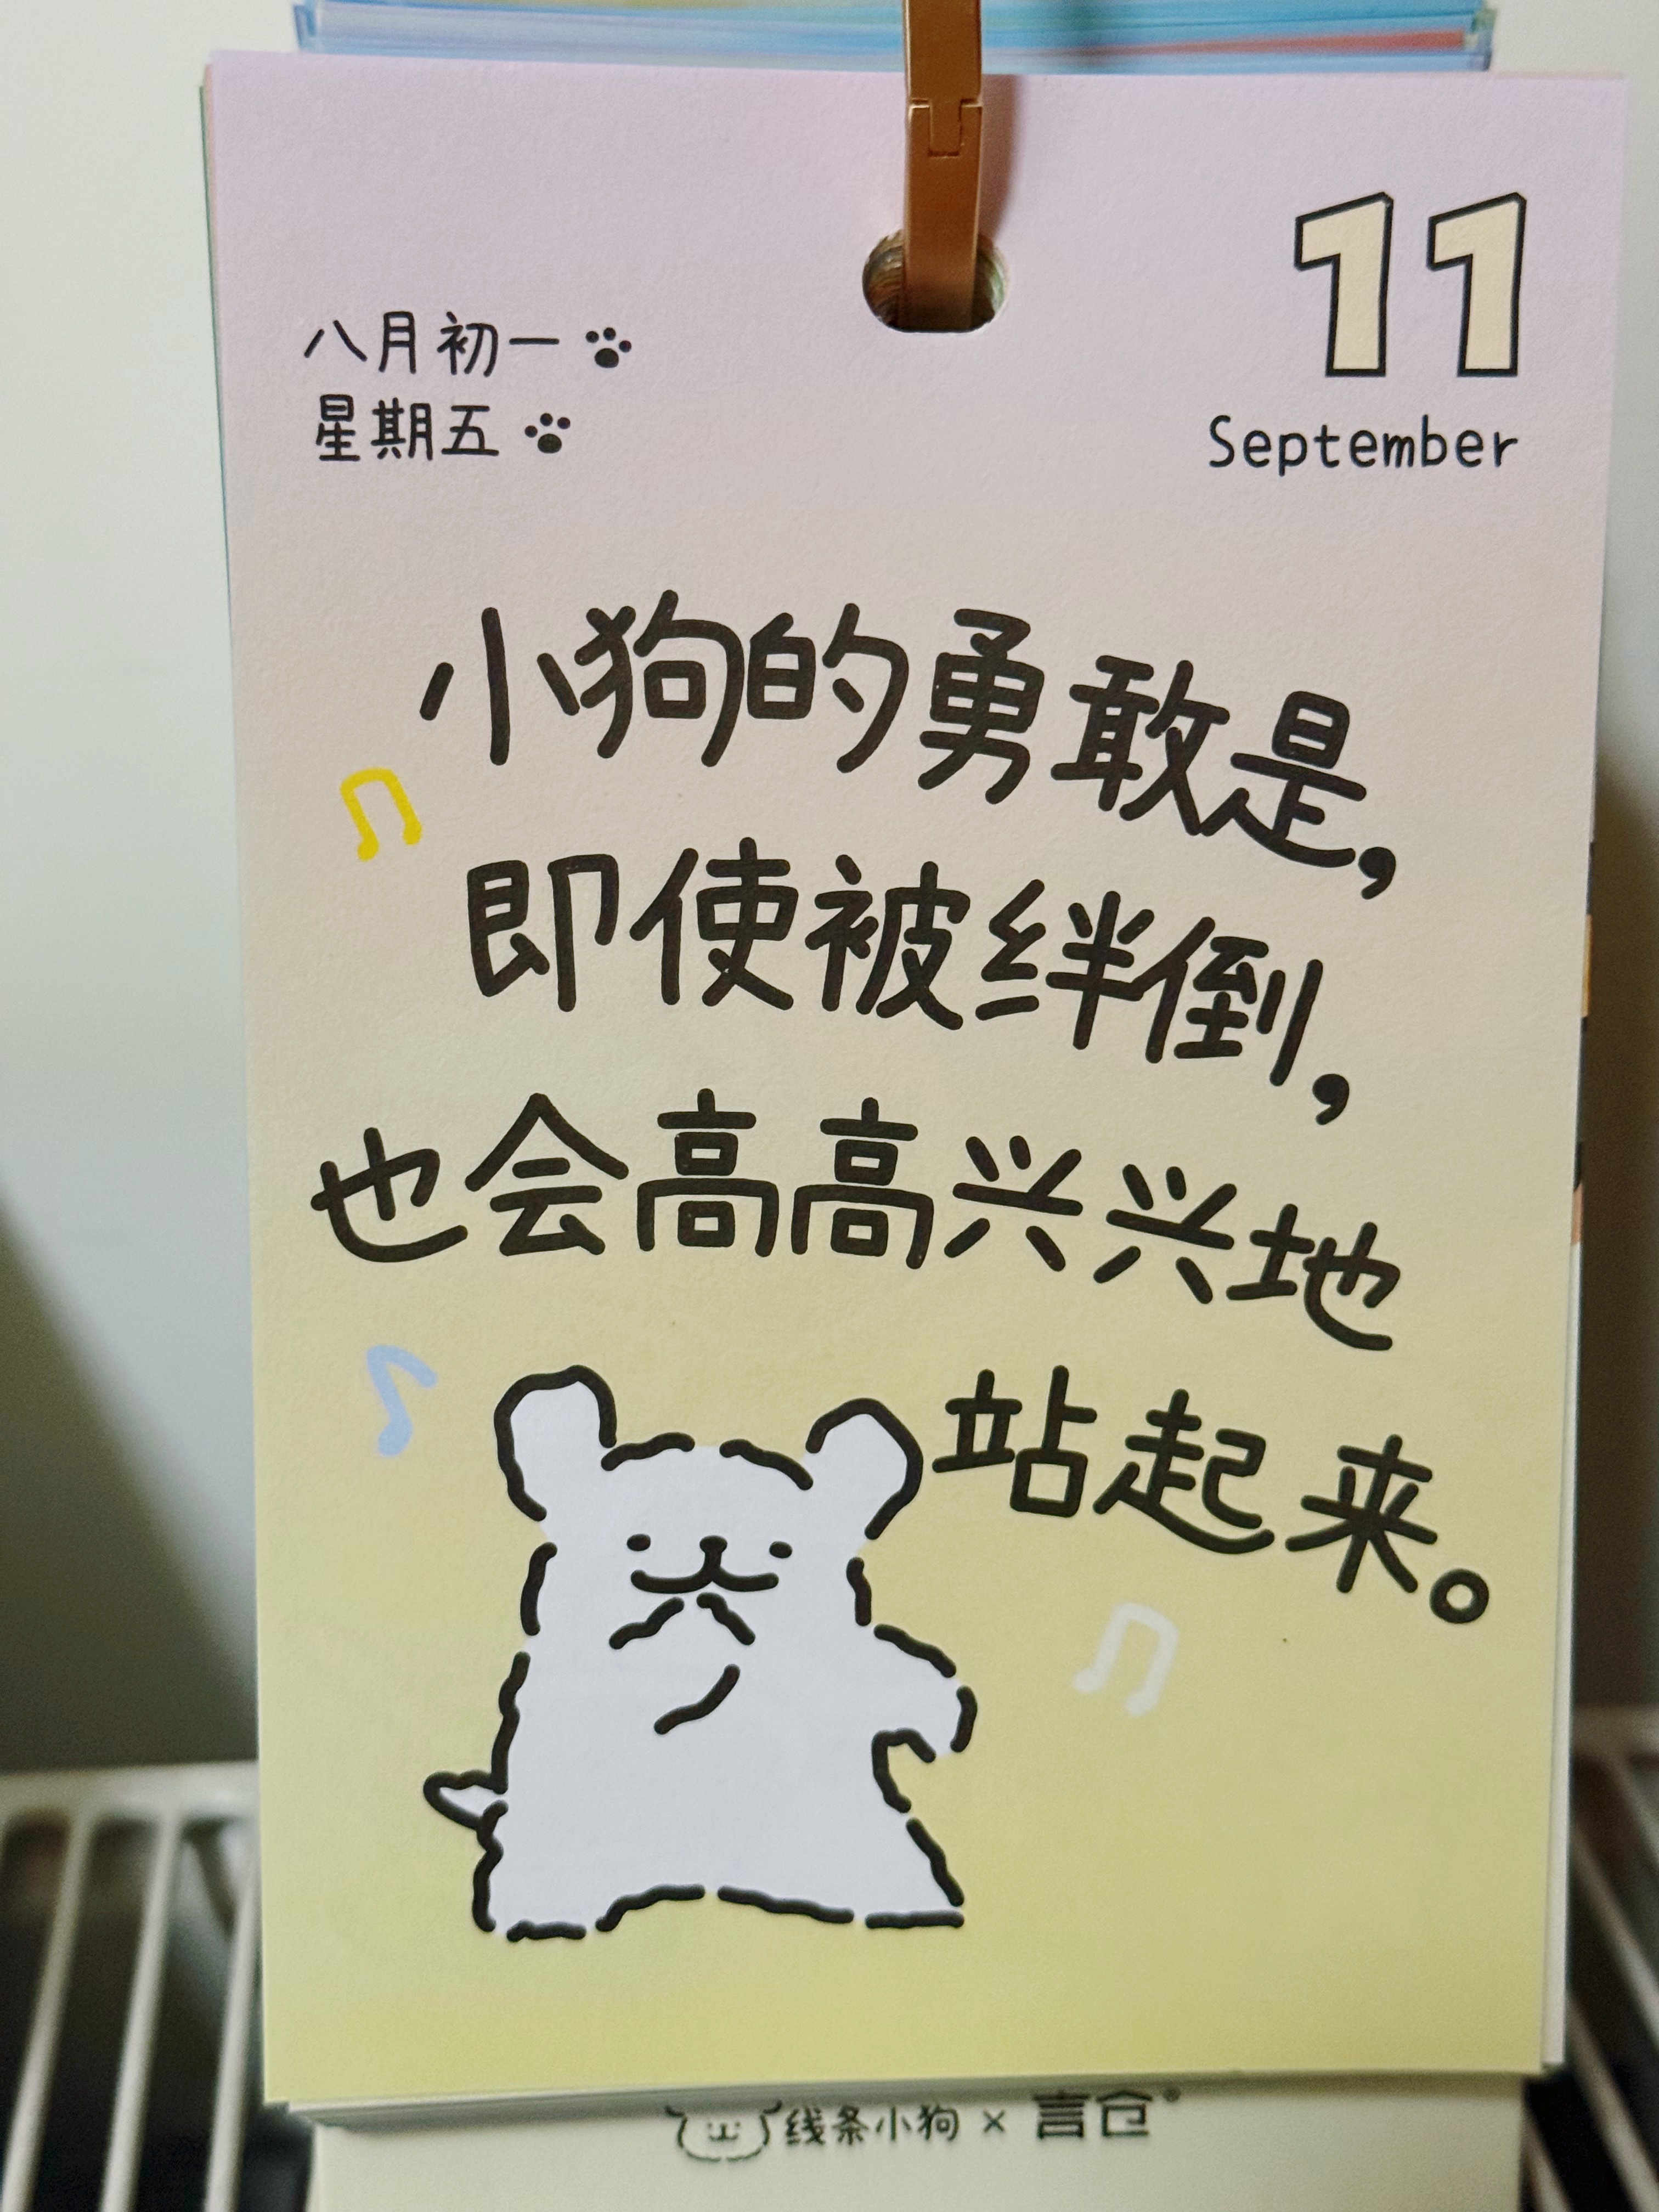 11
September
八月初一
星期五
小狗的勇敢是，
即使被绊倒，
也会高高兴兴地
站起来。
线条小狗 × 言仓